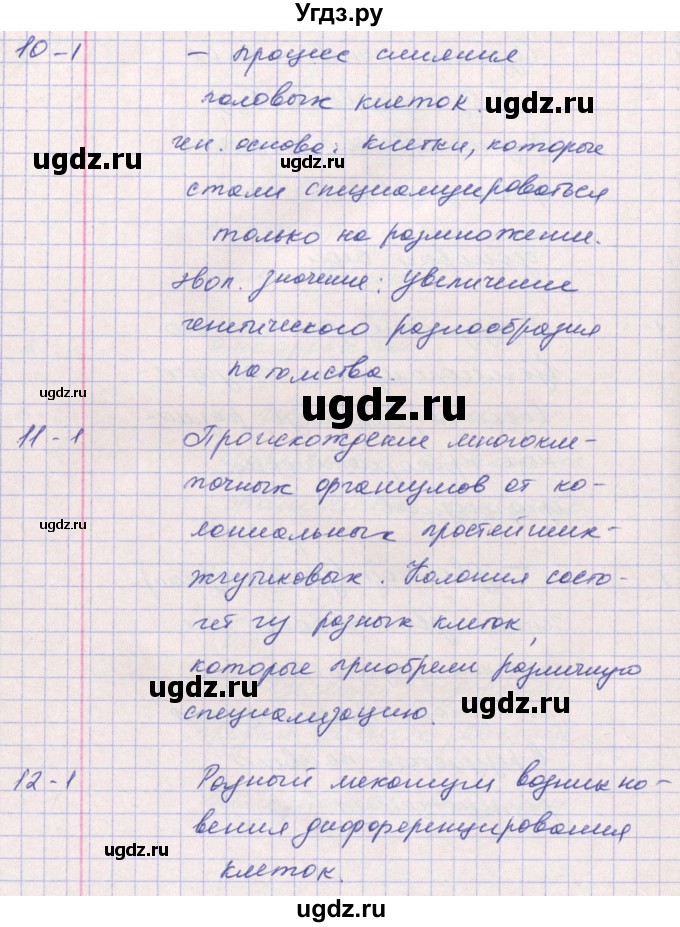 Угдз.ру
10-1 – процесс слияния
половых клеток.
ген. основа: клетки, которые
стали специализироваться
только на размножении.
эвол. значение: увеличение
генетического разнообразия
потомства.
11-1 Происхождение многокле-
точных организмов от ко-
лониальных простейших-
жгутиковых. Колония состо-
ит из разных клеток,
которые приобрели различную
специализацию.
12-1 Разный механизм возникно-
вения дифференцирования
клеток.
ugdz.ru
ugdz.ru
ugdz.ru
ugdz.ru
ugdz.ru
ugdz.ru
ugdz.ru
ugdz.ru
ugdz.ru
ugdz.ru
ugdz.ru
ugdz.ru